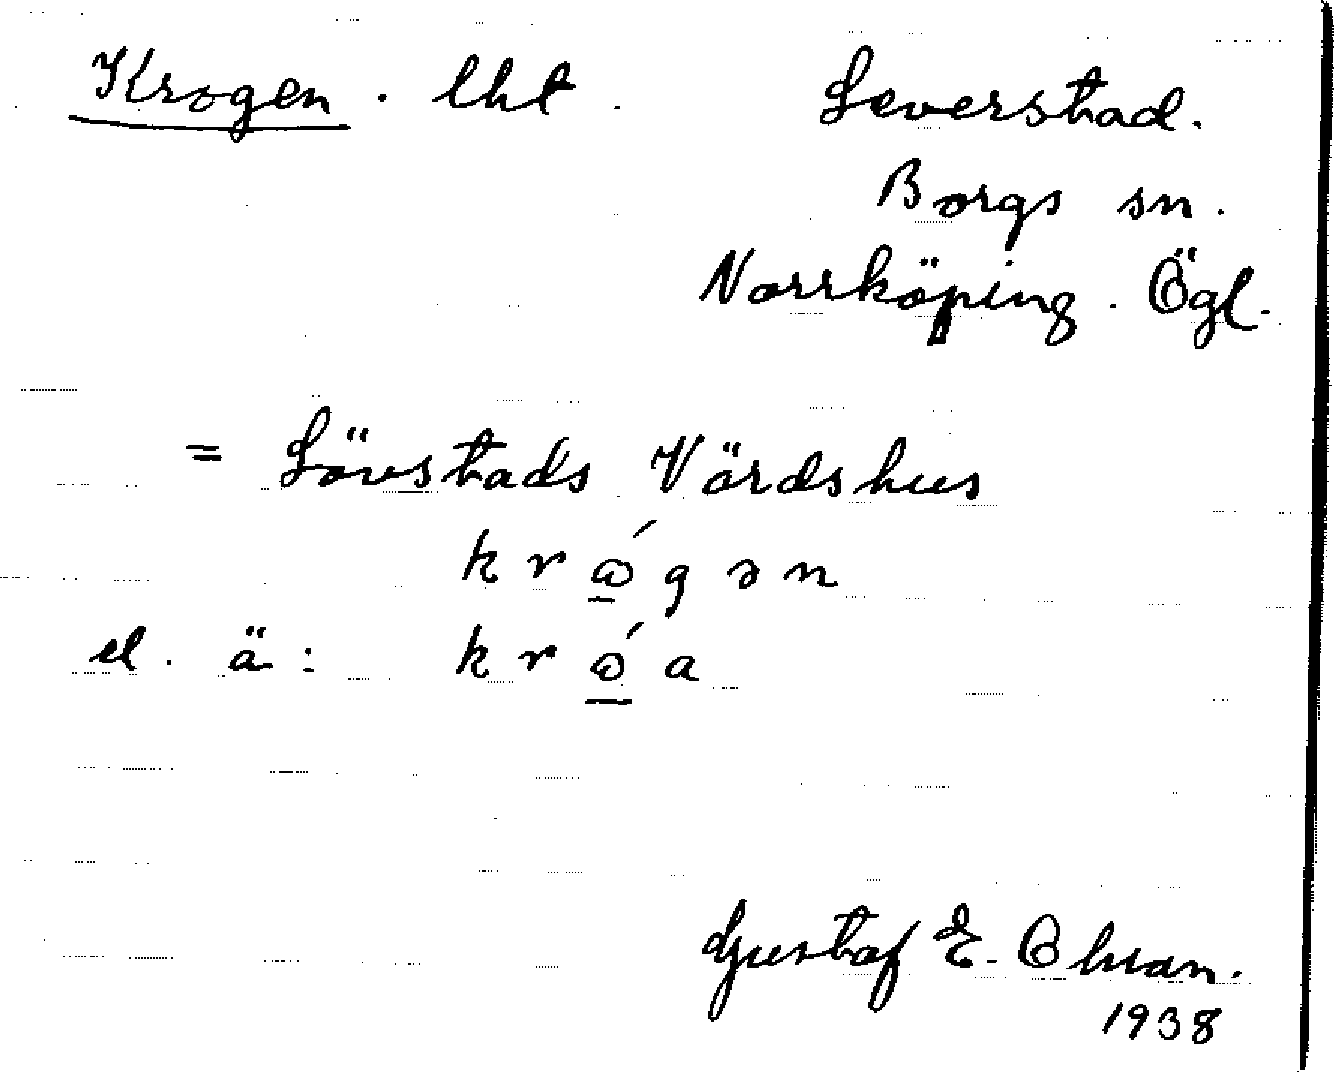 Krogen. lht. Leverstad.
Borgs sn.
Norrköping. Ögl.
= Lövstads Värdshus
krώgən
el. ä: krώa
Gustaf E. Ohman.
1938